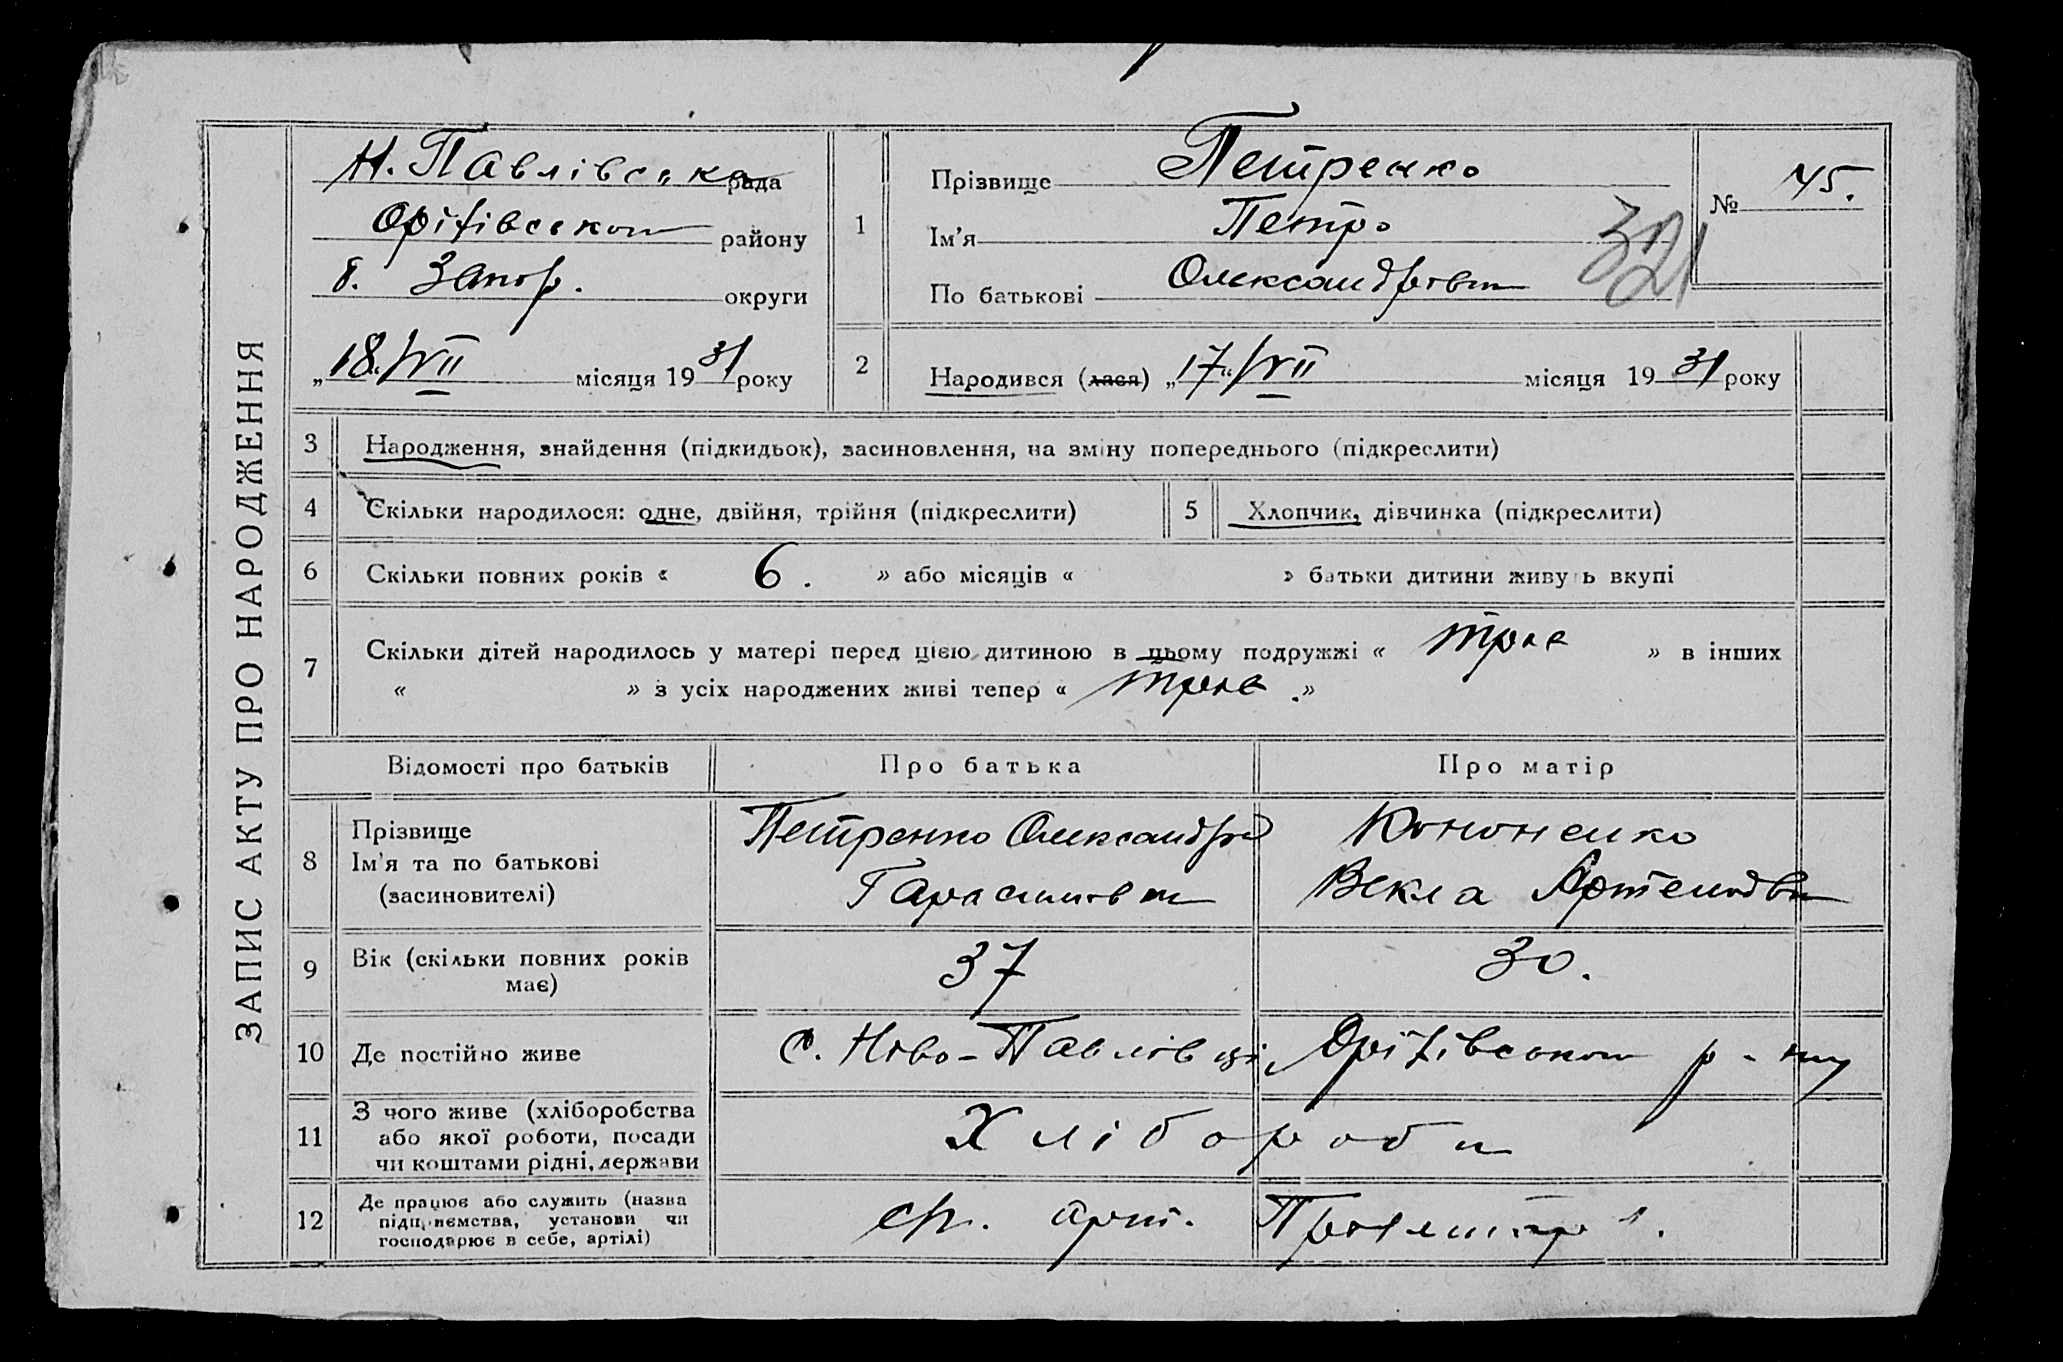 ЗАПИС АКТУ ПРО НАРОДЖЕННЯ
Н. Павлівська рада
Оріхівського району
б. Запор. округи
„18“ VII місяця 1931 року
1
Прізвище Петренко
Ім'я Петро
По батькові Олександрович
№ 45.
321
2 Народився (лася) „17“ VII місяця 1931 року
3 Народження, знайдення (підкидьок), засиновлення, на зміну попереднього (підкреслити)
4 Скільки народилося: одне, двійня, трійня (підкреслити)
5 Хлопчик, дівчинка (підкреслити)
6 Скільки повних років « 6. » або місяців « » батьки дитини живуть вкупі
7 Скільки дітей народилось у матері перед цією дитиною в цьому подружжі « троє » в інших
« » з усіх народжених живі тепер « троє. »
Відомості про батьків Про батька Про матір
8 Прізвище
Ім'я та по батькові
(засиновителі)
Петренко Олександр
Гарасимович
Кононенко
Векла Артемовн
9 Вік (скільки повних років
має)
37 30.
10 Де постійно живе с. Ново-Павлівці Оріхівського р-ну
11 З чого живе (хліборобства
або якої роботи, посади
чи коштами рідні, держави
Хлібороби
12 Де працює або служить (назва
підприємства, установи чи
господарює в себе, артілі)
арт.